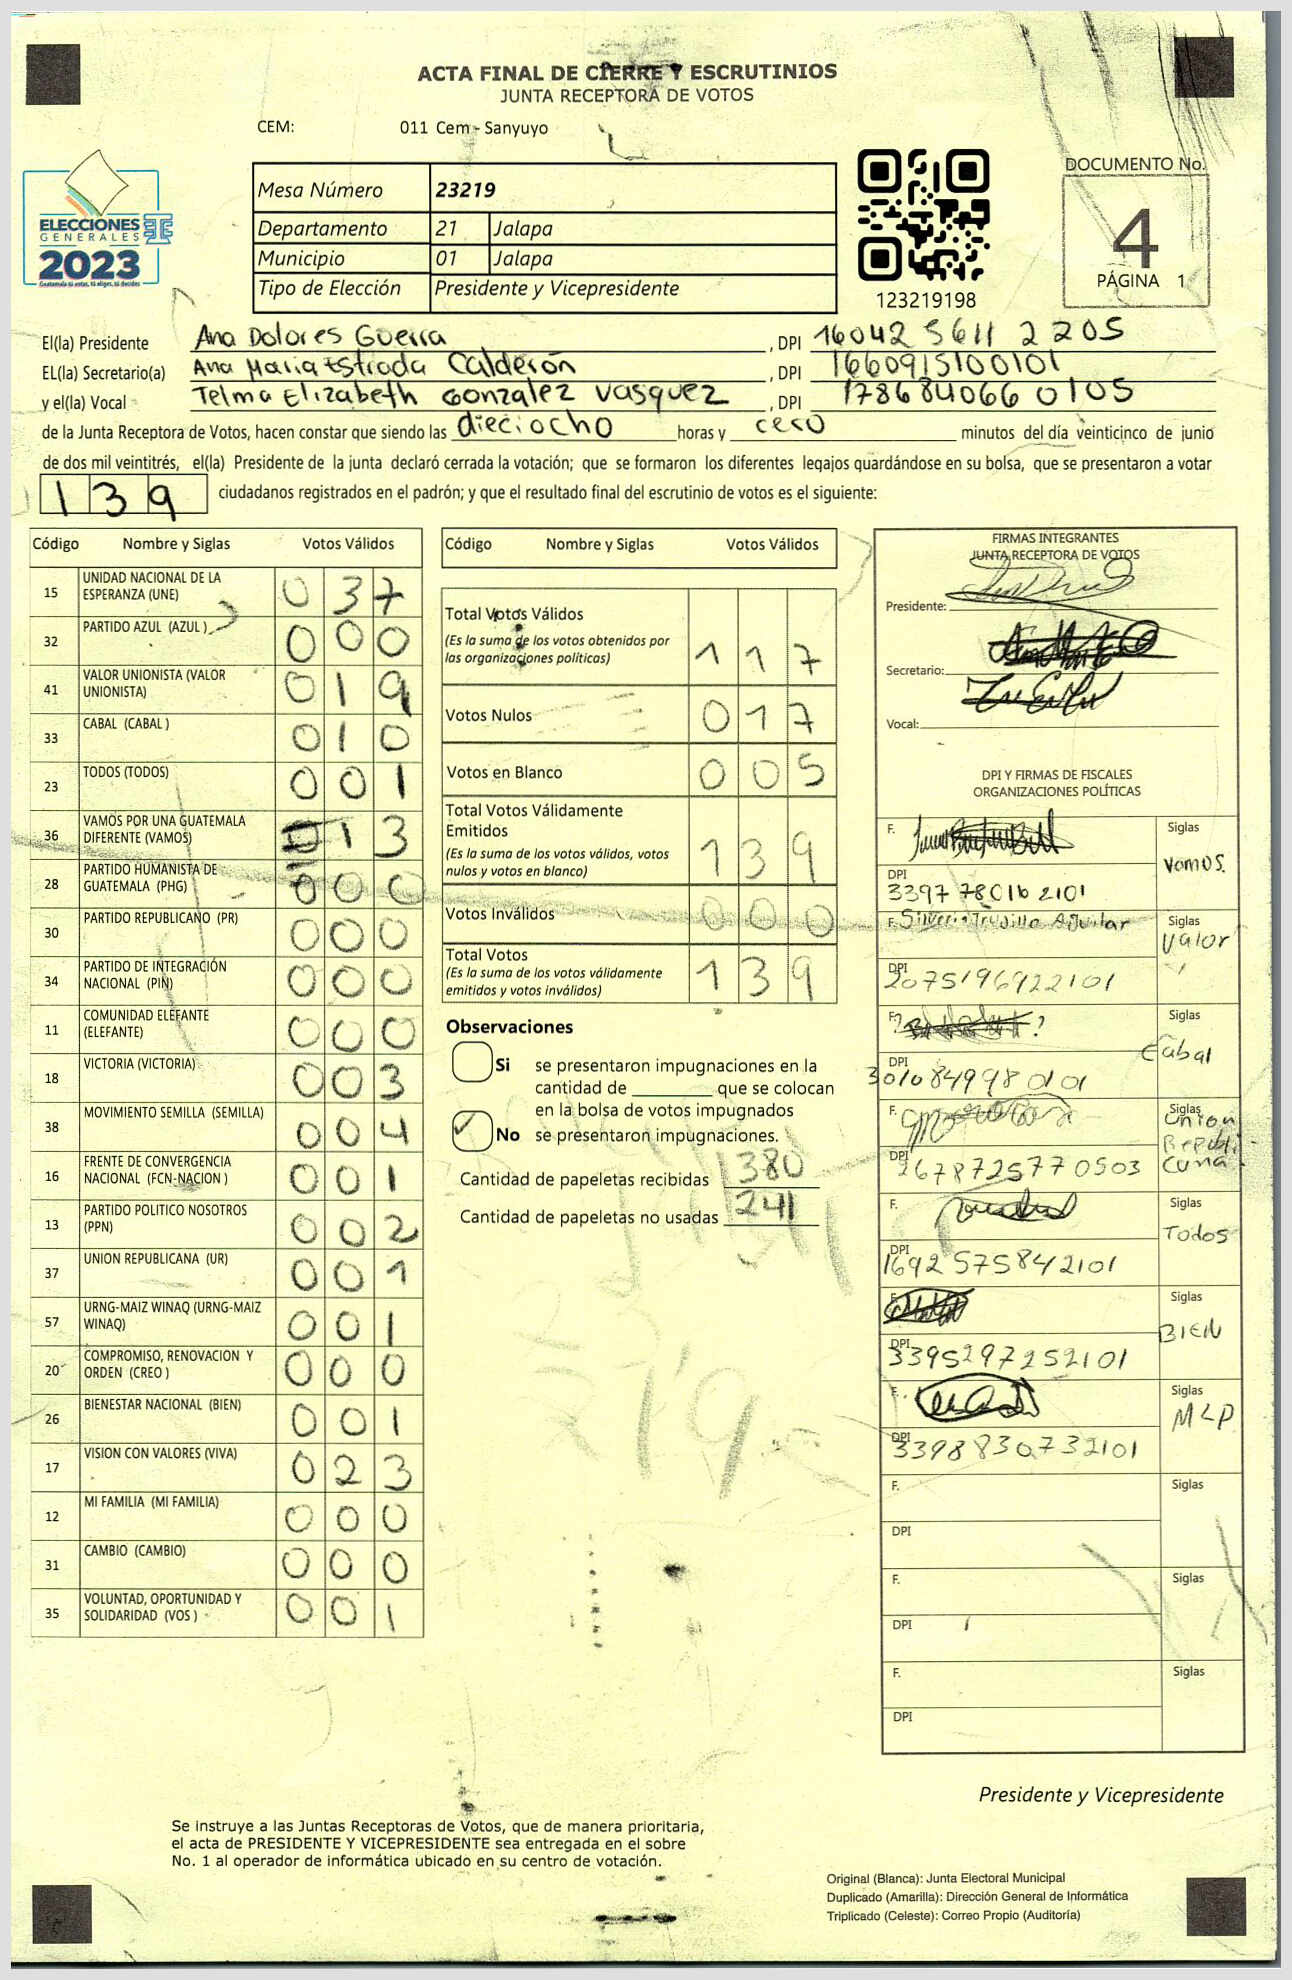 ACTA FINAL DE CIERRE Y ESCRUTINIOS
JUNTA RECEPTORA DE VOTOS
CEM: 011 Cem - Sanyuyo
ELECCIONES
GENERALES
2023
Guatemala tú votas, tú eliges, tú decides
Mesa Número 23219
Departamento 21 Jalapa
Municipio 01 Jalapa
Tipo de Elección Presidente y Vicepresidente
123219198
DOCUMENTO No.
4
PÁGINA 1
El(la) Presidente Ana Dolores Guerra , DPI 16042 5611 2205
EL(la) Secretario(a) Ana Maria Estrada Calderón , DPI 1660915100101
y el(la) Vocal Telma Elizabeth Gonzalez Vasquez , DPI 178684066 0105
de la Junta Receptora de Votos, hacen constar que siendo las dieciocho horas y cero minutos del día veinticinco de junio
de dos mil veintitrés, el(la) Presidente de la junta declaró cerrada la votación; que se formaron los diferentes legajos guardándose en su bolsa, que se presentaron a votar
139 ciudadanos registrados en el padrón; y que el resultado final del escrutinio de votos es el siguiente:
Código Nombre y Siglas Votos Válidos
15 UNIDAD NACIONAL DE LA ESPERANZA (UNE) 037
32 PARTIDO AZUL (AZUL ) 000
41 VALOR UNIONISTA (VALOR UNIONISTA) 019
33 CABAL (CABAL ) 010
23 TODOS (TODOS) 001
36 VAMOS POR UNA GUATEMALA DIFERENTE (VAMOS) 013
28 PARTIDO HUMANISTA DE GUATEMALA (PHG) 000
30 PARTIDO REPUBLICANO (PR) 000
34 PARTIDO DE INTEGRACIÓN NACIONAL (PIN) 000
11 COMUNIDAD ELEFANTE (ELEFANTE) 000
18 VICTORIA (VICTORIA) 003
38 MOVIMIENTO SEMILLA (SEMILLA) 004
16 FRENTE DE CONVERGENCIA NACIONAL (FCN-NACION ) 001
13 PARTIDO POLITICO NOSOTROS (PPN) 002
37 UNION REPUBLICANA (UR) 001
57 URNG-MAIZ WINAQ (URNG-MAIZ WINAQ) 001
20 COMPROMISO, RENOVACION Y ORDEN (CREO ) 000
26 BIENESTAR NACIONAL (BIEN) 001
17 VISION CON VALORES (VIVA) 023
12 MI FAMILIA (MI FAMILIA) 000
31 CAMBIO (CAMBIO) 000
35 VOLUNTAD, OPORTUNIDAD Y SOLIDARIDAD (VOS ) 001
Código Nombre y Siglas Votos Válidos
Total Votos Válidos 117
(Es la suma de los votos obtenidos por
las organizaciones políticas)
Votos Nulos 017
Votos en Blanco 005
Total Votos Válidamente
Emitidos 139
(Es la suma de los votos válidos, votos
nulos y votos en blanco)
Votos Inválidos 000
Total Votos 139
(Es la suma de los votos válidamente
emitidos y votos inválidos)
Observaciones
Si se presentaron impugnaciones en la
cantidad de que se colocan
en la bolsa de votos impugnados
No se presentaron impugnaciones.
Cantidad de papeletas recibidas 380
Cantidad de papeletas no usadas 241
FIRMAS INTEGRANTES
JUNTA RECEPTORA DE VOTOS
Presidente:
Secretario:
Vocal:
DPI Y FIRMAS DE FISCALES
ORGANIZACIONES POLÍTICAS
F. Siglas
Vamos.
DPI
3397 78016 2101
F. Silverio Trujillo Aguilar Siglas
Valor
DPI
2075196922101
F. Siglas
Cabal
DPI
3010849980101
F. Siglas
Union
Republi
cana
DPI
2678725770503
F. Siglas
Todos
DPI
1692575842101
F. Siglas
BIEN
DPI
3395297252101
F. Siglas
MLP
DPI
3398830732101
F. Siglas
DPI
F. Siglas
DPI
F. Siglas
DPI
Presidente y Vicepresidente
Se instruye a las Juntas Receptoras de Votos, que de manera prioritaria,
el acta de PRESIDENTE Y VICEPRESIDENTE sea entregada en el sobre
No. 1 al operador de informática ubicado en su centro de votación.
Original (Blanca): Junta Electoral Municipal
Duplicado (Amarilla): Dirección General de Informática
Triplicado (Celeste): Correo Propio (Auditoría)